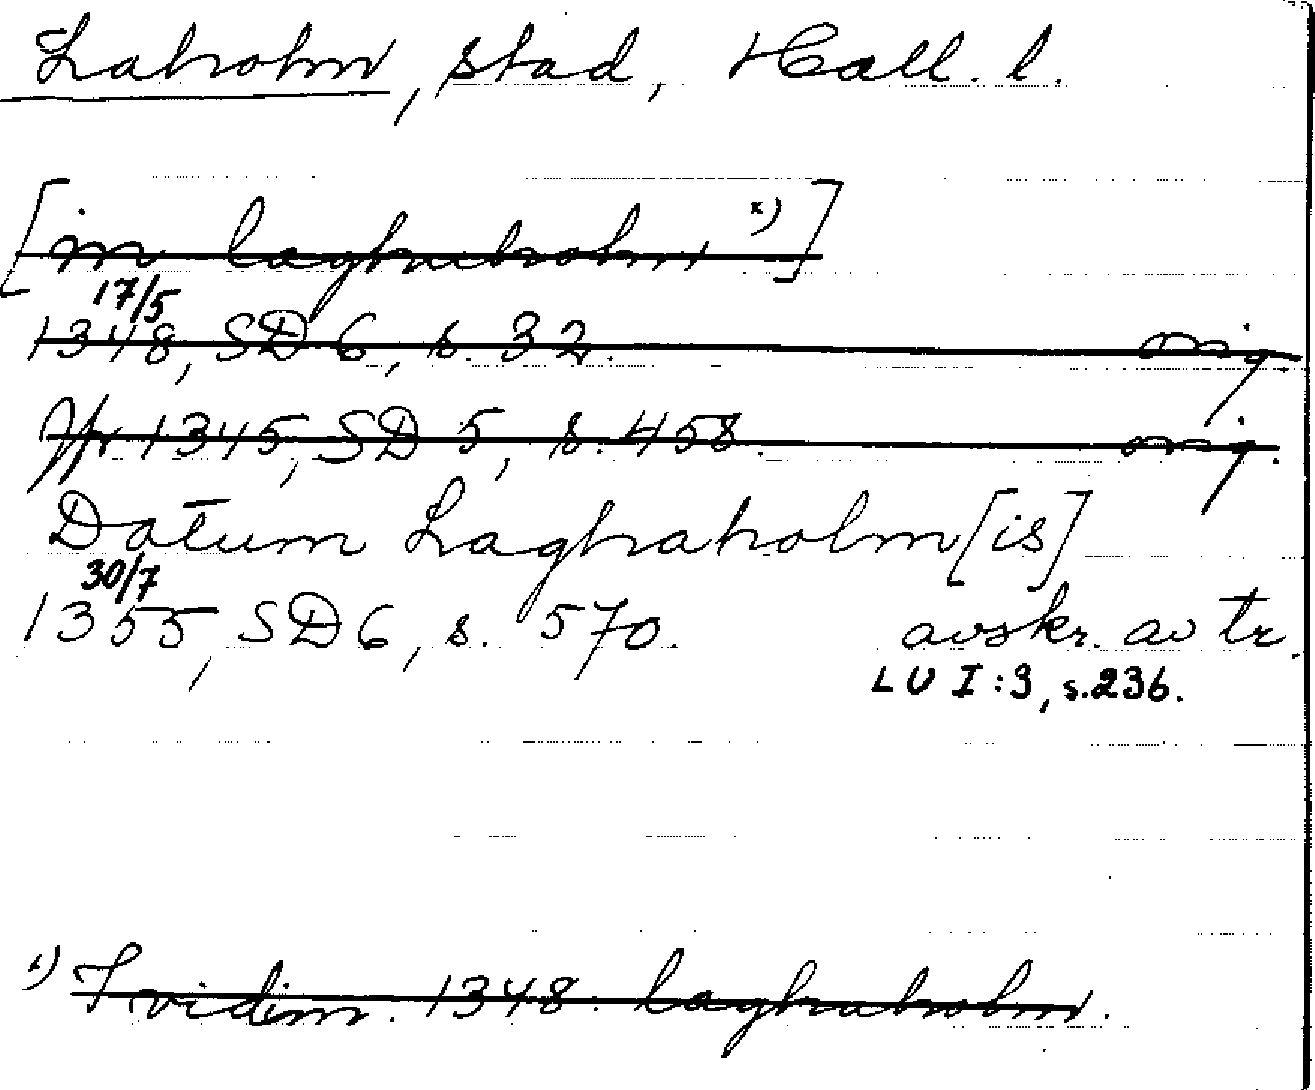 Laholm, stad, Hall. l.
[in laghaholm x)]
17/5
1348, SD 6, s. 32. orig.
Jfr 1345, SD 5, s. 458. orig.
Datum Laghaholm [is]
30/7
1355, SD 6, s. 570. avskr. av tr.
LU I:3, s.236.
x) I vidim. 1348. laghaholm.